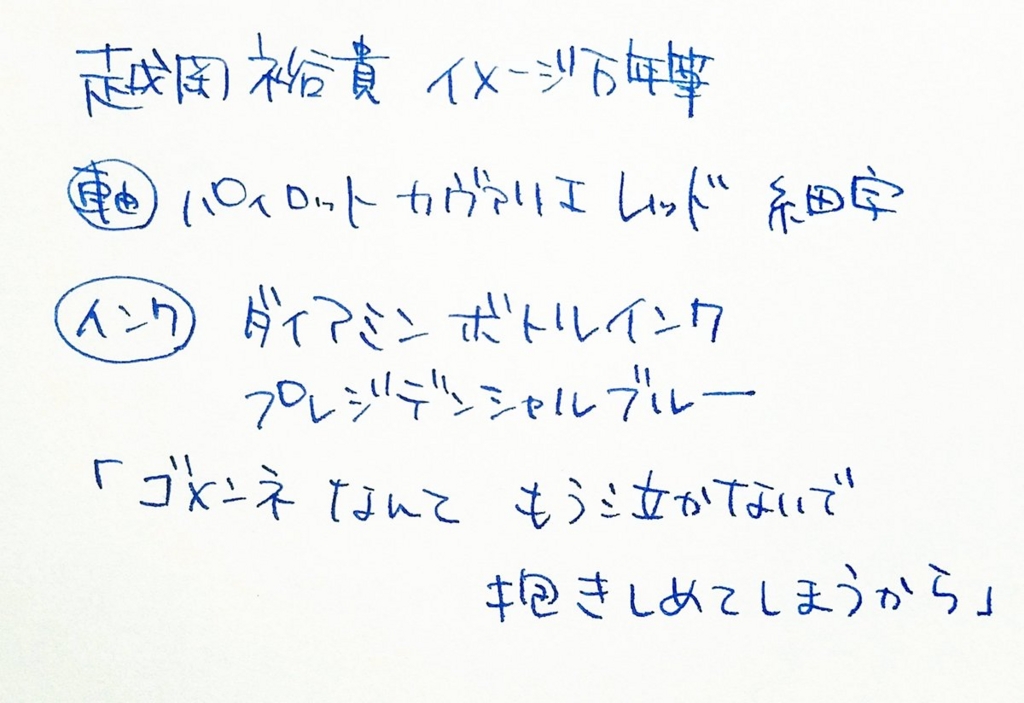 越岡裕貴 イメージ万年筆
軸 パイロット カヴァリエ レッド 細字
インク ダイアミン ボトルインク
プレジデンシャルブルー
「ゴメンネ なんて もう泣かないで
抱きしめてしまうから」